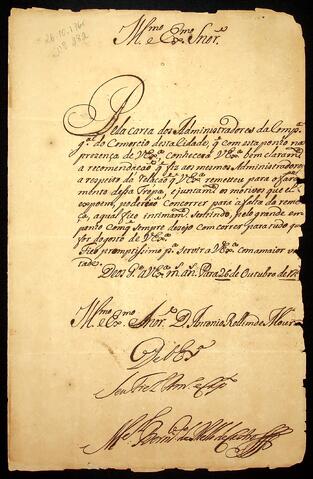 26.10.176
Nº 882
Illmo e Exmo Snor
Pela carta dos Administradores da Comp
gª do Comercio desta Cidade, q com esta ponho na
prezença de V Exª conhecerá V Exª bem claramte
a recomendação q fiz aos mesmos Administradores
a respeito da relação q V Exª remeteu para o
mento dessa Tropa, e juntamte os motivos que el
expoem, poderão concorrer para a falta da
a qual fico intimamte sentindo pelo grande em
penho com q sempre dezejo concorrer para tudo que
for do gosto de V Exª
Fico promptissimo pª servir a V Exª com a maior
tade.
Deos Gde a V Exª ms ans. Pará 26 de Outubro de
Illmo e Exmo Snor D. Antonio Rollim de Moura
De V Exª
Mel Bernardo de Mello de Castro